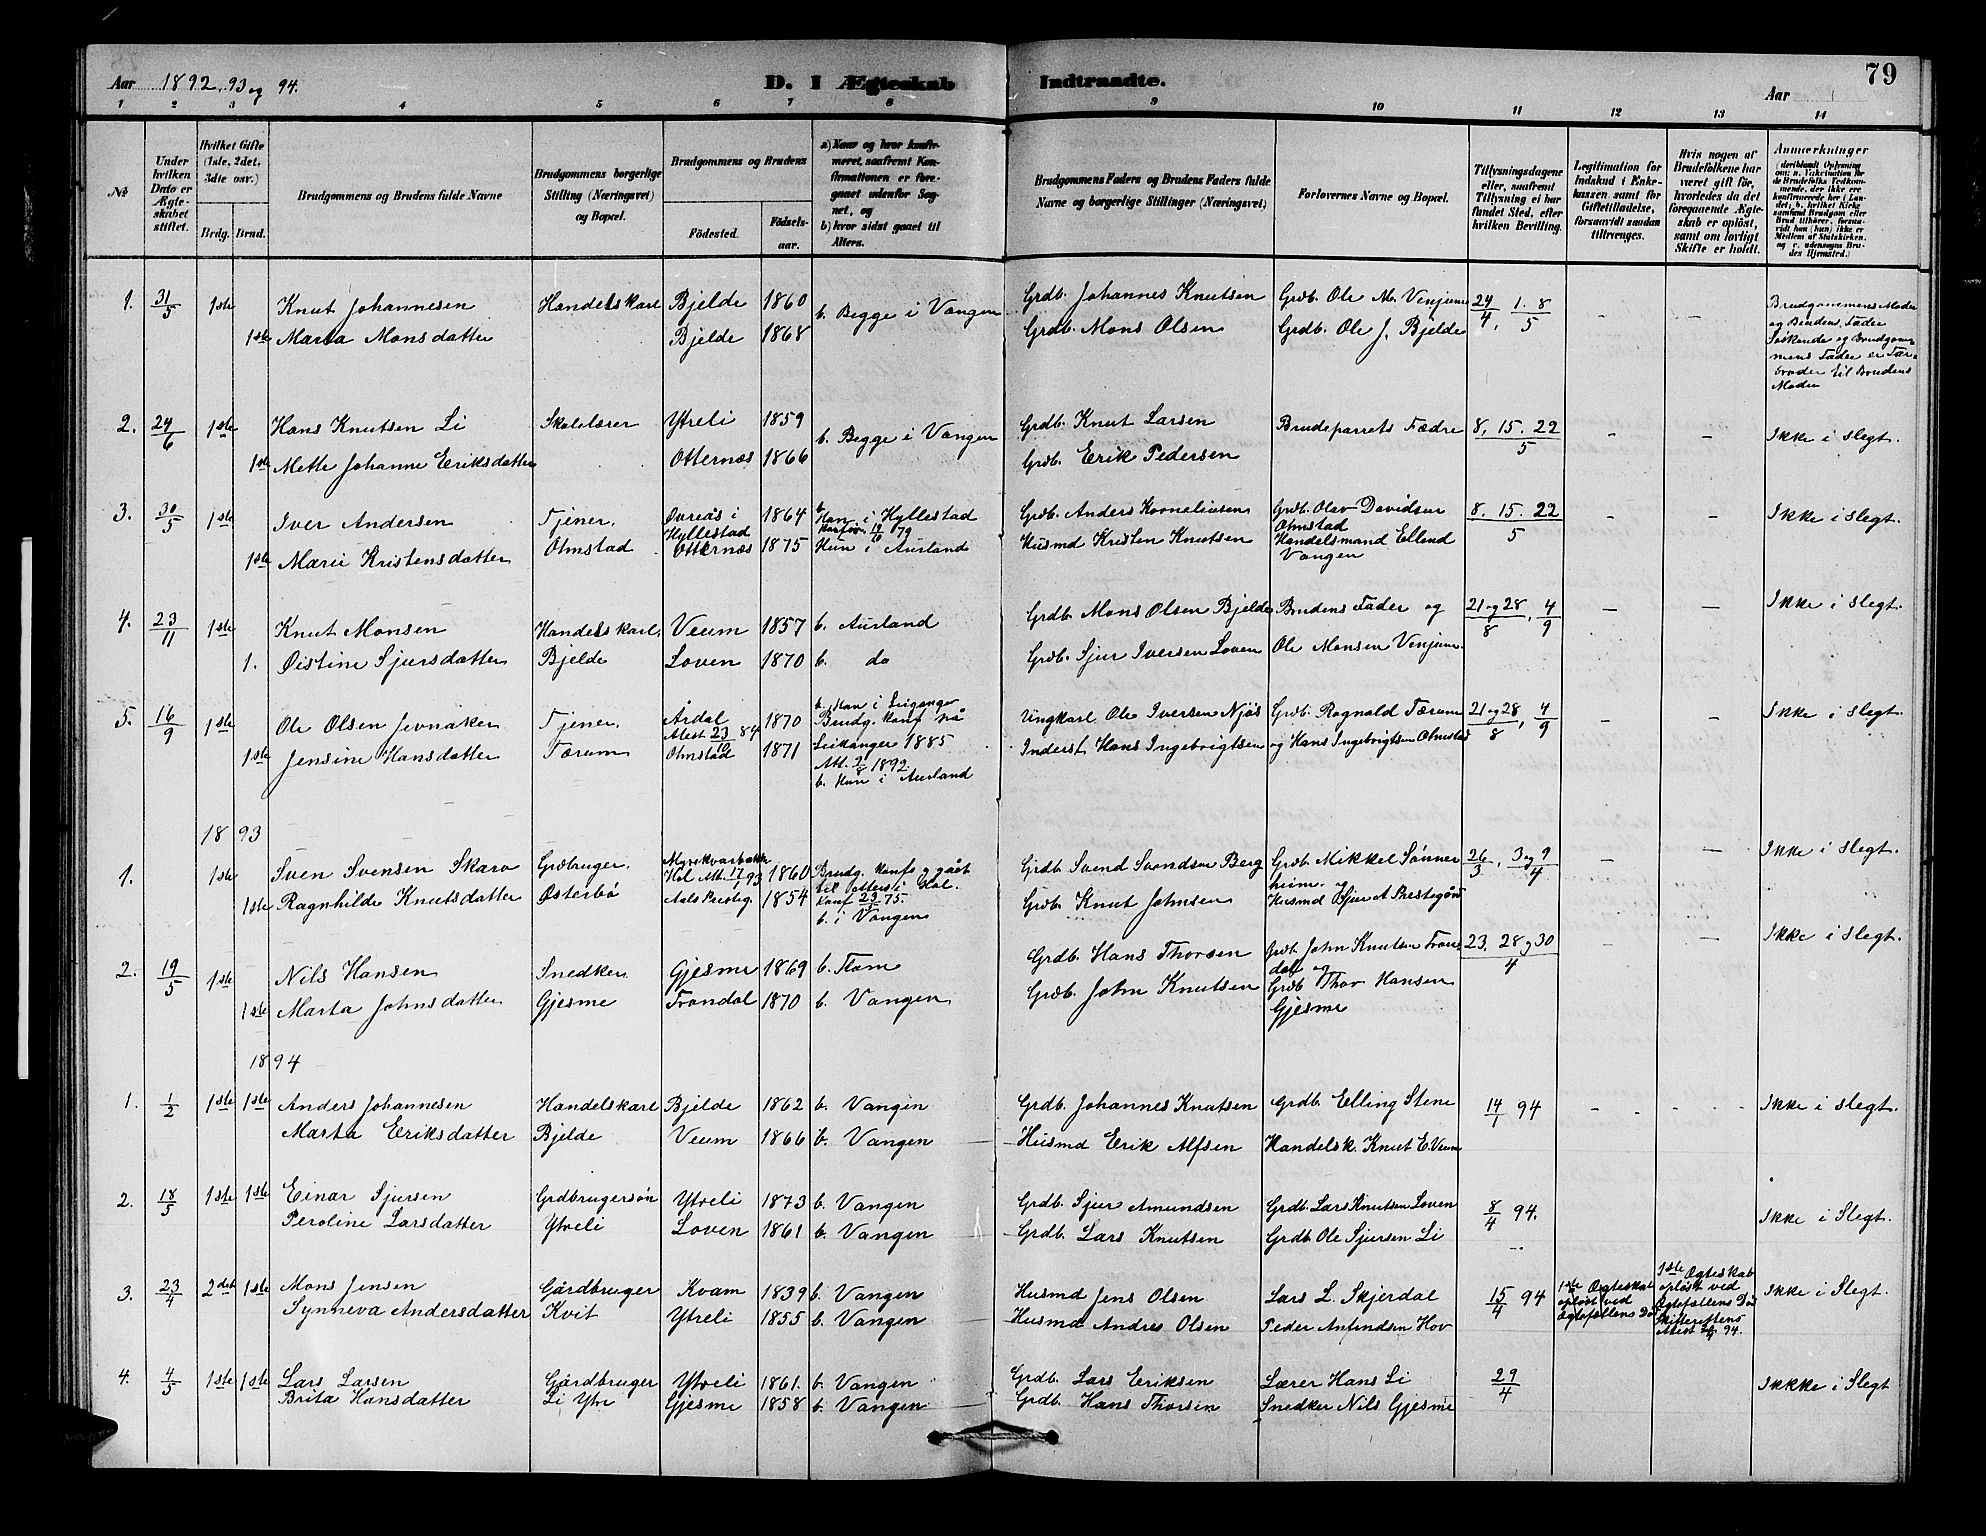 79
Aar 1892, 93 og 94.
D. I Ægteskab Indtraadte.
Aar
1 2 3 4 5 6 7 8 9 10 11 12 13 14
№
Under hvilken Dato er Ægteskabet stiftet.
Hvilket Gifte (1ste, 2det, 3die osv.)
Brdg. Brud.
Brudgommens og Brudens fulde Navne
Brudgommens borgerlige Stilling (Næringsvei) og Bopæl.
Brudgommens og Brudens
Fødested. Fødselsaar.
a) Naar og hvor konfirmeret, saafremt Konfirmationen er foregaaet udenfor Sognet, og
b) hvor sidst gaaet til Alters.
Brudgommens Faders og Brudens Faders fulde Navne og borgerlige Stillinger (Næringsvei)
Forlovernes Navne og Bopæl.
Tillysningsdagene eller, saafremt Tillysning ei har fundet Sted, efter hvilken Bevilling.
Legitimation for Indskud i Enkekassen samt for Giftetilladelse, forsaavidt saadan tiltrænges.
Hvis nogen af Brudefolkene har været gift før, hvorledes da det foregaaende Ægteskab er opløst, samt om lovligt Skifte er holdt.
Anmærkninger (deriblandt Oplysning om: a. Vakcination for de Brudefolks Vedkommende, der ikke ere konfirmerede her i Landet; b. hvilket Kirkesamfund Brudgom eller Brud tilhører, forsaavidt han (hun) ikke er Medlem af Statskirken, og c. udensogns Brudes Hjemsted.)
1. 31/5 1ste Knut Johannesen Handelskarl Bjelde 1860 b. Begge i Vangen Grdb. Johannes Knutsen Grdb. Ole M. Venjum 24/4, 1. 8/5 - - Brudgommens Moder og Brudens Fader Søskende og Brudgommens Fader er Farbroder til Brudens Moder
1ste Marta Monsdatter Bjelde 1868 Grdb. Mons Olsen Grdb. Ole J. Bjelde
2. 24/6 1ste Hans Knutsen Li Skolelærer Ytreli 1859 b. Begge i Vangen Grdb. Knut Larsen Brudeparrets Fædre 8. 15. 22/5 - - Ikke i slegt.
1ste Mette Johanne Eriksdatter Otternes 1866 Grdb. Erik Pedersen
3. 30/5 1ste Iver Andersen Tjener, Øvreås i Hyllestad 1864 b. Han i Hyllestad Konfirm. 19/10 79 Grdb. Anders Korneliusen Grdb. Olav Davidsen Olmstad 8. 15. 22/5 - - Ikke i slegt.
1ste Marie Kristensdatter Olmstad Otternes 1875 Hun i Aurland Husmd Kristen Knutsen Handelsmand Ellend Vangen
4. 23/11 1ste Knut Monsen Handelskarl, Veum 1857 b. Aurland Grdb. Mons Olsen Bjelde Brudens Fader og 21 og 28/8, 4/9 - - Ikke i slegt.
1. Øistine Sjursdatter Bjelde Loven 1870 b. do Grdb. Sjur Iversen Loven Ole Monsen Venjum.
5. 16/9 1ste Ole Olsen Jevnaker Tjener, Årdal Atest 23/10 84 1870 b. Han i Leiganger Brudg. konf på Leikanger 1885 Att. 21/8 1892. Ungkarl Ole Iversen Njøs Grdb. Ragnald Færum 21 og 28/8, 4/9 - - Ikke i slegt.
1ste Jensine Hansdatter Færum Olmstad 1871 b. Hun i Aurland Inderst Hans Ingebrigtsen og Hans Ingebrigtsen Olmstad
1893
1. 1ste Sven Svensen Skaro Grdbruger. Hol Att. 17/1 93 1860 Brudg. konf og gået til alters i Hol. Konf 23/5 75. Grdb Svend Svendsen Berg Grdb. Mikkel Sønnerheim og 26/3, 3 og 9/4 - - Ikke i slegt.
1ste Ragnhilde Knutsdatter Østerbø Aals Prestig. 1854 b. i Vangen Grdb. Knut Johnsen Husmd Sjur A Prestegård
2. 19/5 1ste Nils Hansen Snedker Gjesme 1869 b. Flam Grdb. Hans Thorsen Grdb. John Knutsen Frondal og 23. 28 og 30/4 - - Ikke i slegt.
1ste Marta Johnsdatter Gjesme Frondal 1870 b. Vangen Grdb. John Knutsen Grdb Thor Hansen Gjesme
1894
1. 1/2 1ste 1ste Anders Johannesen Handelskarl Bjelde 1862 b. Vangen Grdb. Johannes Knutsen Grdb. Elling Stene 14/1 94 - - - Ikke i slegt.
Marta Eriksdatter Bjelde Veum 1866 b. Vangen Husmd Erik Alfsen Handelsk. Knut E. Veum
2. 18/5 1ste 1ste Einar Sjursen Grdbrugersøn Ytreli 1873 b. Vangen Grdb. Sjur Amundsen Grdb. Lars Knutsen Loven 8/4 94. Ikke i Slegt.
Peroline Larsdatter Ytreli Loven 1861 b. Vangen Grdb. Lars Knutsen Grdb Ole Sjursen Li
3. 23/4 2det 1ste Mons Jensen Gårdbruger Kvam 1839 b. Vangen Husmd Jens Olsen Lars L. Skjerdal 15/4 94 1ste Ægteskab opløst ved Ægtefællens Død 1ste Ægteskab opløst ved Ægtefællens Død Skifterettens Attest 94. Ikke i Slegt.
Synneva Andersdatter Kvit Ytreli 1855 b. Vangen Husmd Andres Olsen Peder Anfindsen Hov
4. 4/5 1ste 1ste Lars Larsen Gårdbruger Ytreli 1861. b. Vangen Grdb. Lars Eriksen Lærer Hans Li 29/4 Ikkke i Slegt
Brita Hansdatter Li Ytre Gjesme 1858 b. Vangen. Grdb. Hans Thorsen Snedker Nils Gjesme